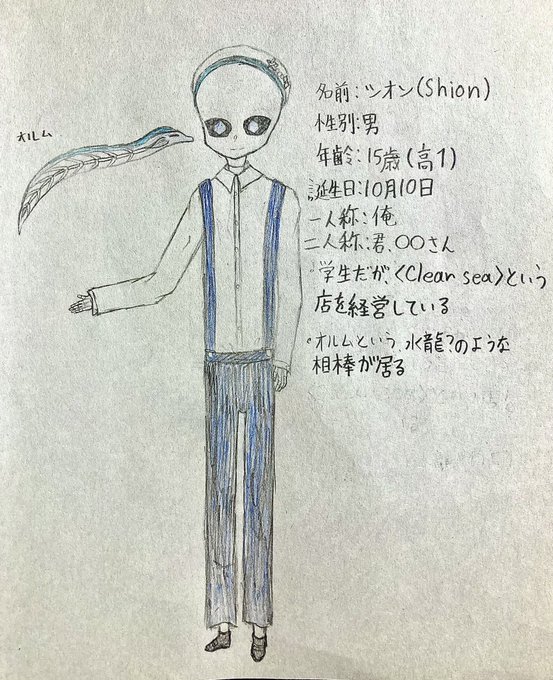 オルム
名前:シオン(Shion)
性別:男
年齢:15歳(高1)
誕生日:10月10日
一人称:俺
二人称:君、〇〇さん
・学生だが、<Clean sea>という
店を経営している
・オルムという、水龍?のような
相棒が居る